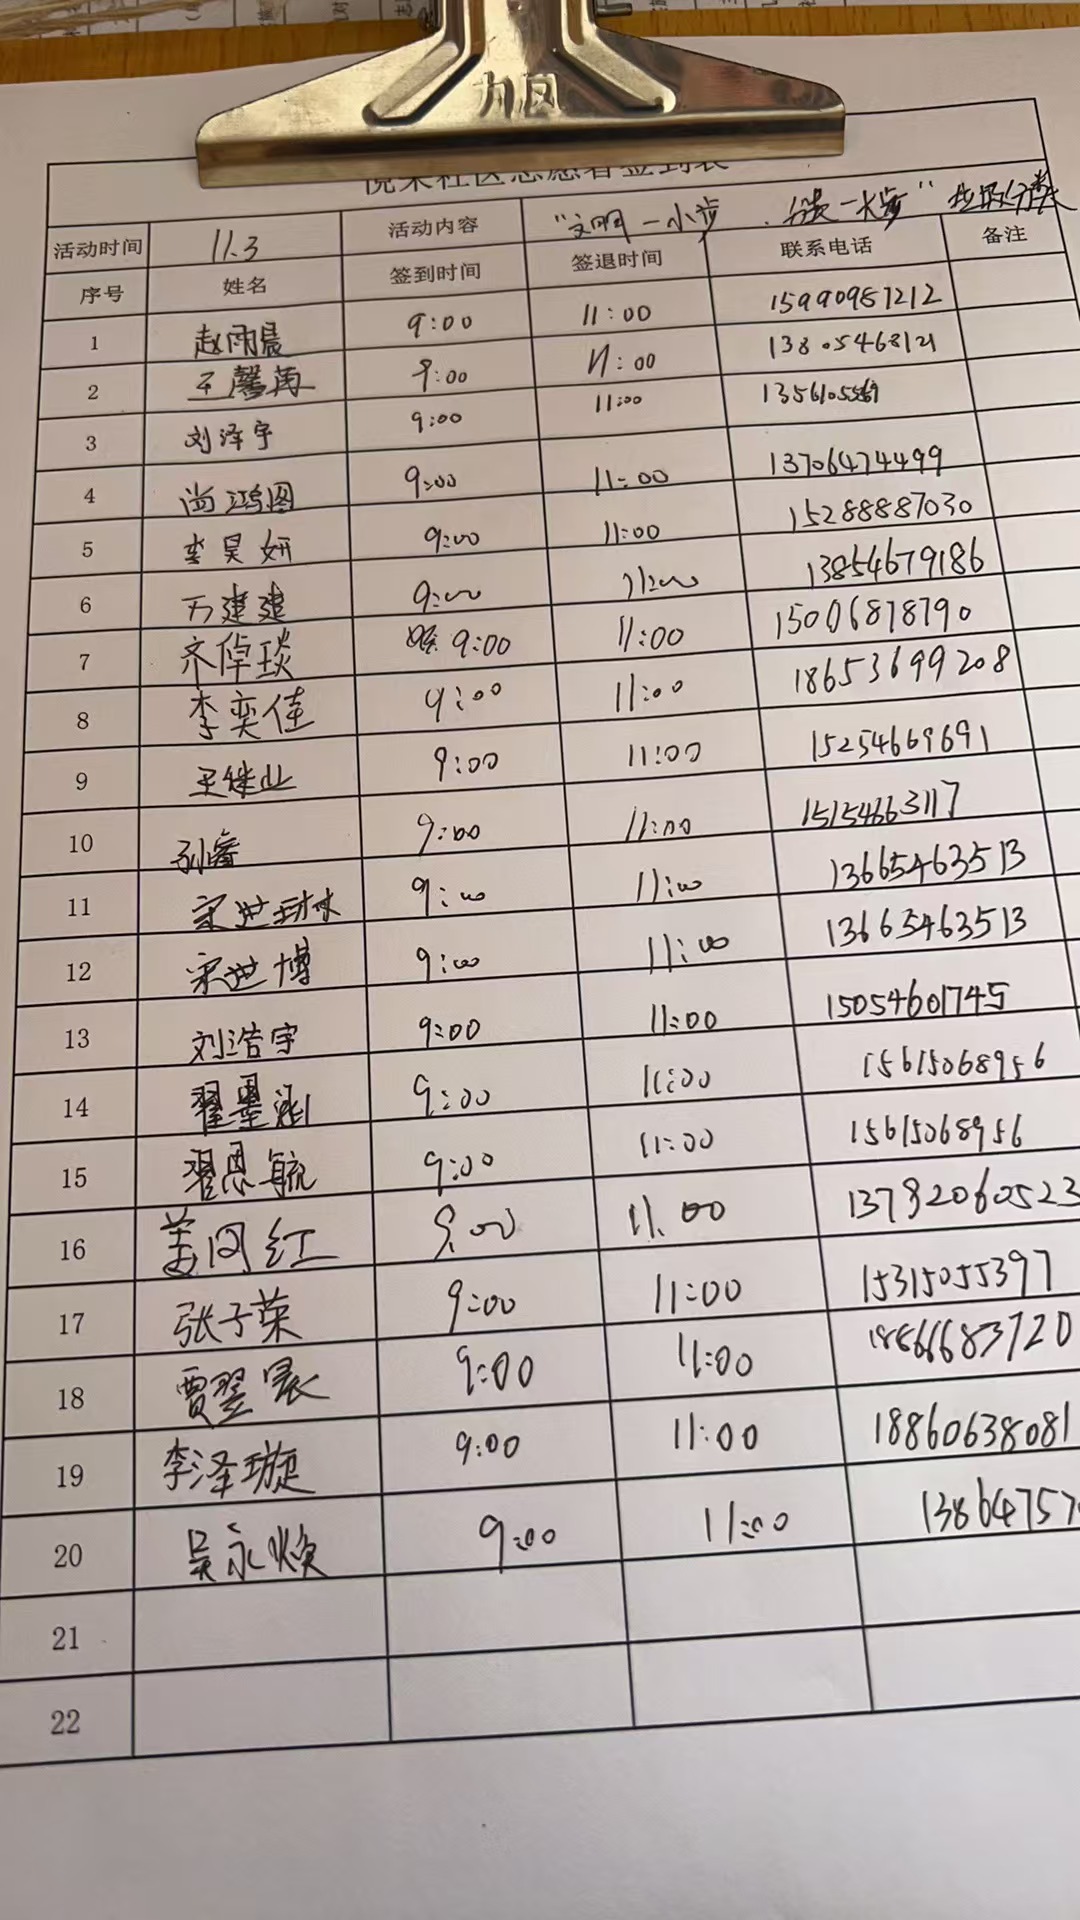 力风
悦来社区志愿者签到表
活动时间 11.3 活动内容 "文明一小步、分类一大步"垃圾分类
序号 姓名 签到时间 签退时间 联系电话 备注
1 赵雨晨 9:00 11:00 15990987212
2 王馨苒 9:00 11:00 13805468121
3 刘泽宇 9:00 11:00
4 尚鸿图 9:00 11:00 13706474499
5 李昊妍 9:00 11:00 15288887030
6 万建建 9:00 11:00 13854679186
7 齐倬琰 9:00 11:00 15006878790
8 李奕佳 9:00 11:00 18653699208
9 王继业 9:00 11:00 15254669691
10 孙睿 9:00 11:00 15154663117
11 宋世琳 9:00 11:00 13665463513
12 宋世博 9:00 11:00 13665463513
13 刘浩宇 9:00 11:00 15054601745
14 翟墨涵 9:00 11:00 15615068956
15 翟恩毓 9:00 11:00 15615068956
16 姜同红 9:00 11:00 13792060523
17 张子荣 9:00 11:00 15315055397
18 贾翌晨 9:00 11:00 18866683720
19 李泽璇 9:00 11:00 18860638081
20 吴永焕 9:00 11:00 13864757
21
22